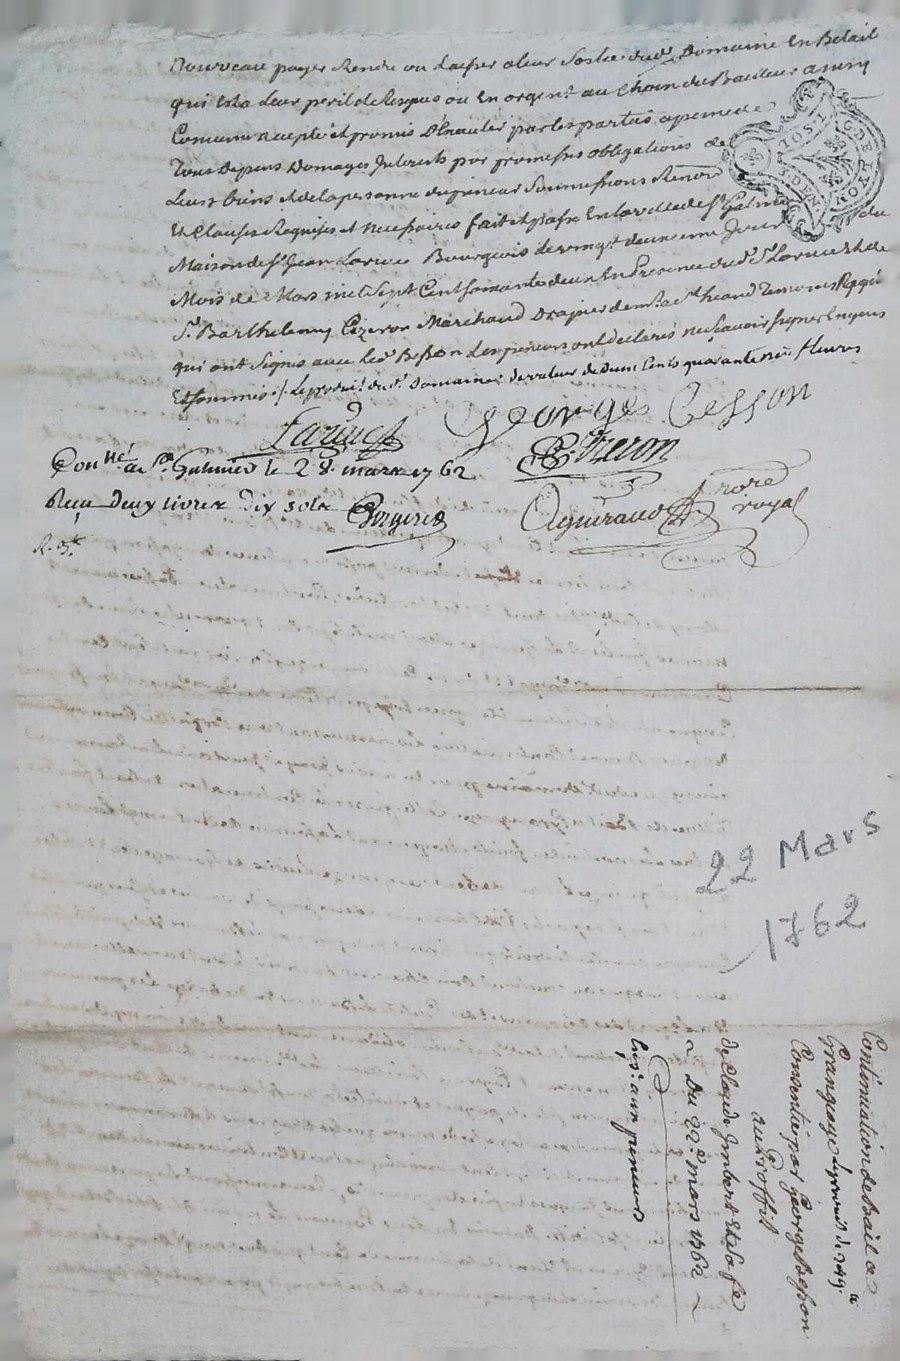 Nouveau payer Rendre ou Laisser a leur Sortie dud. Domaine En Betail
qui Est a Leur peril & Risques ou En argent au Choix du Bailleur ainsy
Convenu accepté et promis D'Executer par les parties a peine de
Tous Depens Domages Interests par promesses obligations de
Leurs biens et de la personne du preneur Soumissions Renon
Et Clauses Requises et necessaires fait et passé En la ville de St Galmier
Maison de Sr Jean Larue Bourgeois Le vingt deuxieme Jour du
Mois de Mars mil Sept Cent soixante deux En Presence dud. Sr Larue et de
Sr. Barthelemy Cezeron Marchand Drapier demt. a St heand Temoins Requis
qui ont Signés avec Led. Besson Les preneurs ont déclarés ne Scavoir signer Enquis
Et sommés /. Le produit du d. Domaine de valeur de Deux Cents quarante neuf Livres
Larue
George Besson
B. Cezeron
Conllé a St. Galmier le 28. mars 1762
Reçu deux livres dix sols
nore
royal
R. 5.
22 Mars
1762
Continuation de bail a
Grangeage du produit de 249 ₶
Consentie par George Besson
au Proffit
de Claude Imbert et Sa fe
~ Du 22e. mars 1762 ~
Exp: aux preneurs